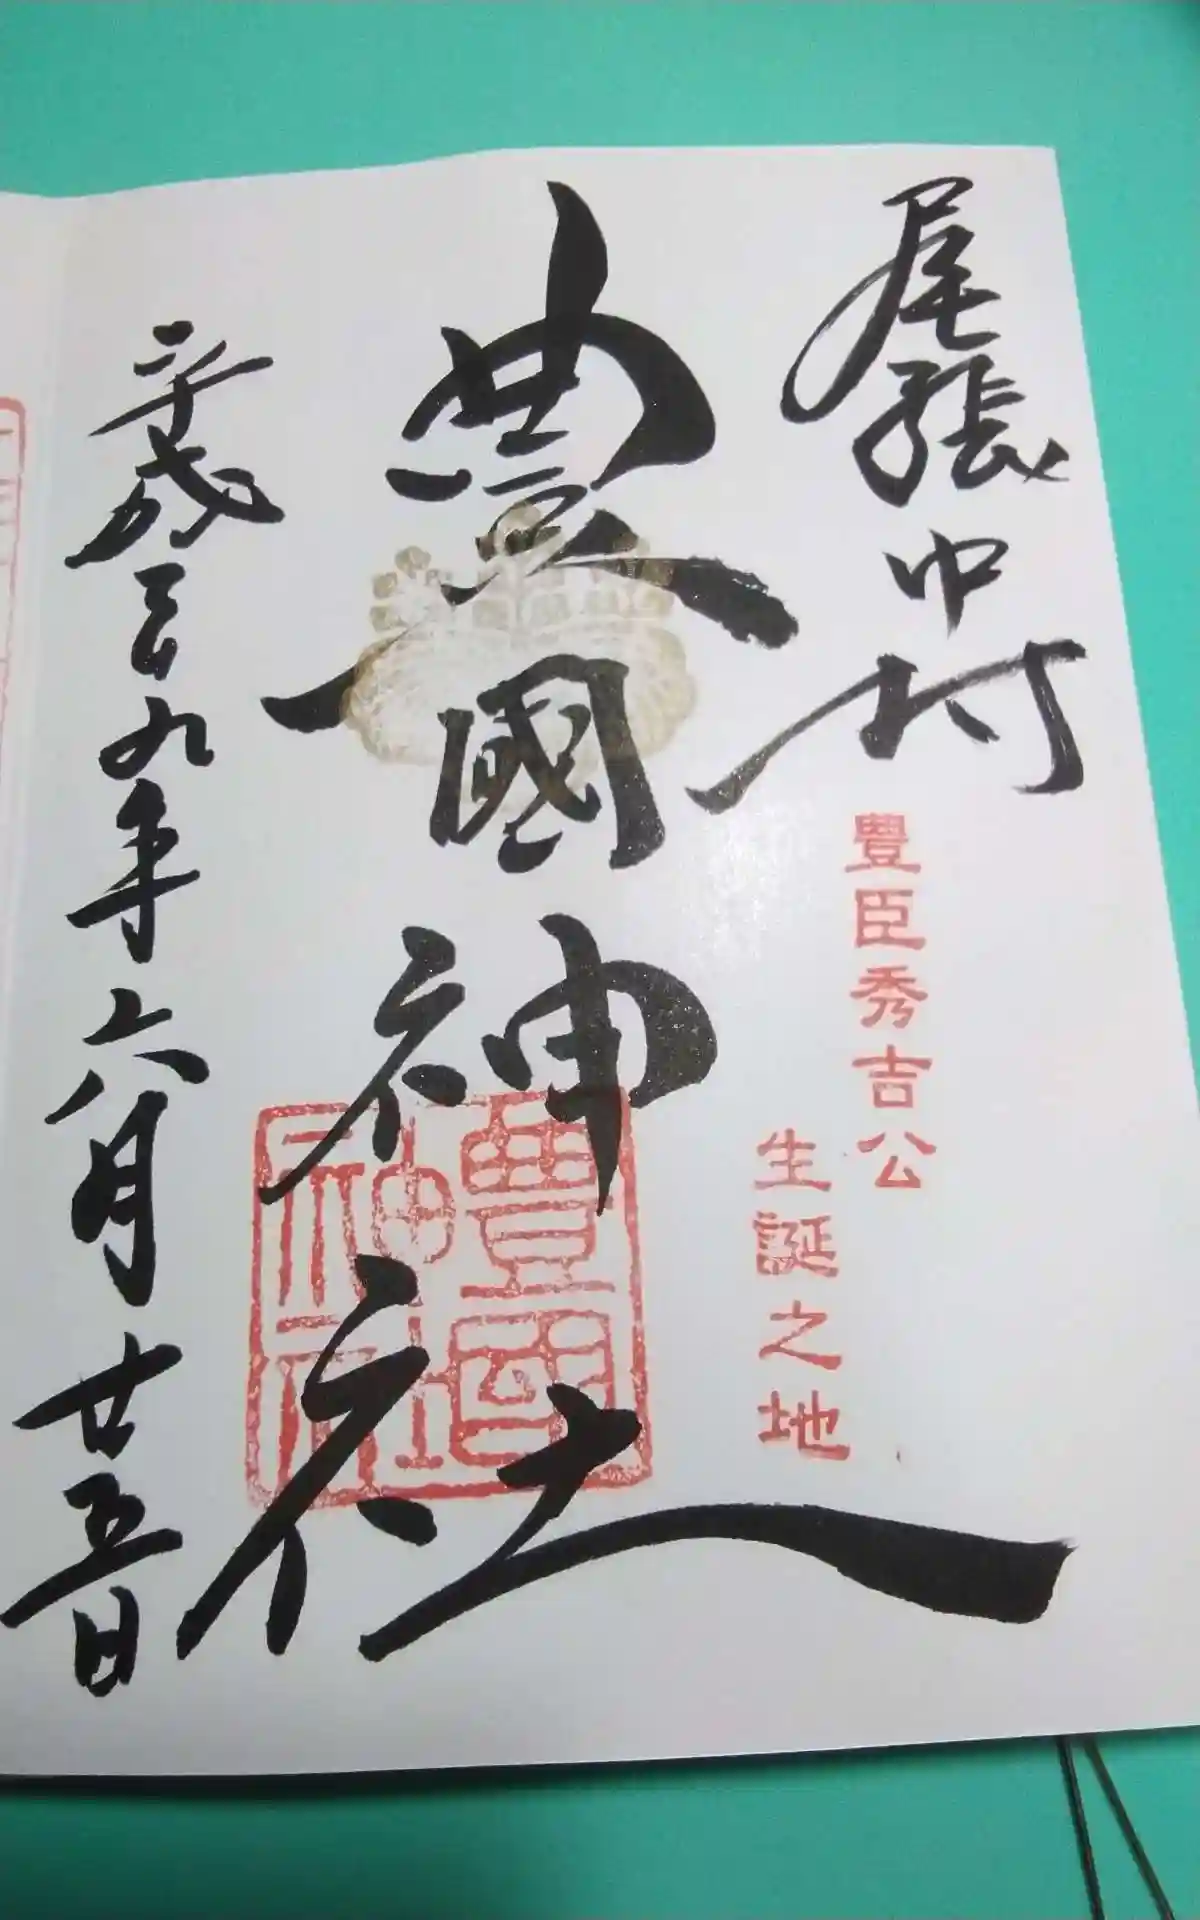 尾張中村
豐臣秀吉公
生誕之地
豐國神社
豐國
神社
平成二十九年六月廿五日